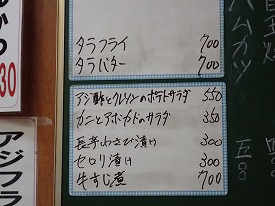 タラフライ 700
タラバター 700
アジ酢とクレソンのポテトサラダ 550
カニとアボカドのサラダ 350
長芋わさび漬け 300
セロリ漬け 300
牛すじ煮 700
ハムカツ
30
アジフラ
五〇